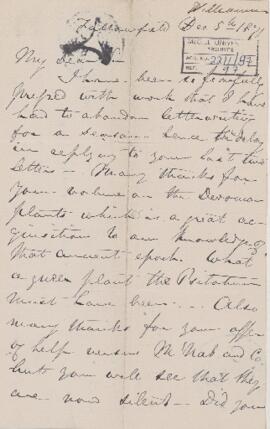 Fallowfield Dec 5th 1871
My dear Sir
I have been so fearfully
pressed with work that I have
had to abandon letterwriting
for a season - hence the delay
in replying to your last two
letters - Many thanks for
your volume on the Devonian
plants which is a great ac-
quisition to our knowledge of
that ancient epoch. What
a queer plant the Psilophyton
must have been - Also
many thanks for your offer
of help versus McNab and Co
but you will see that they
are now silent - Did you